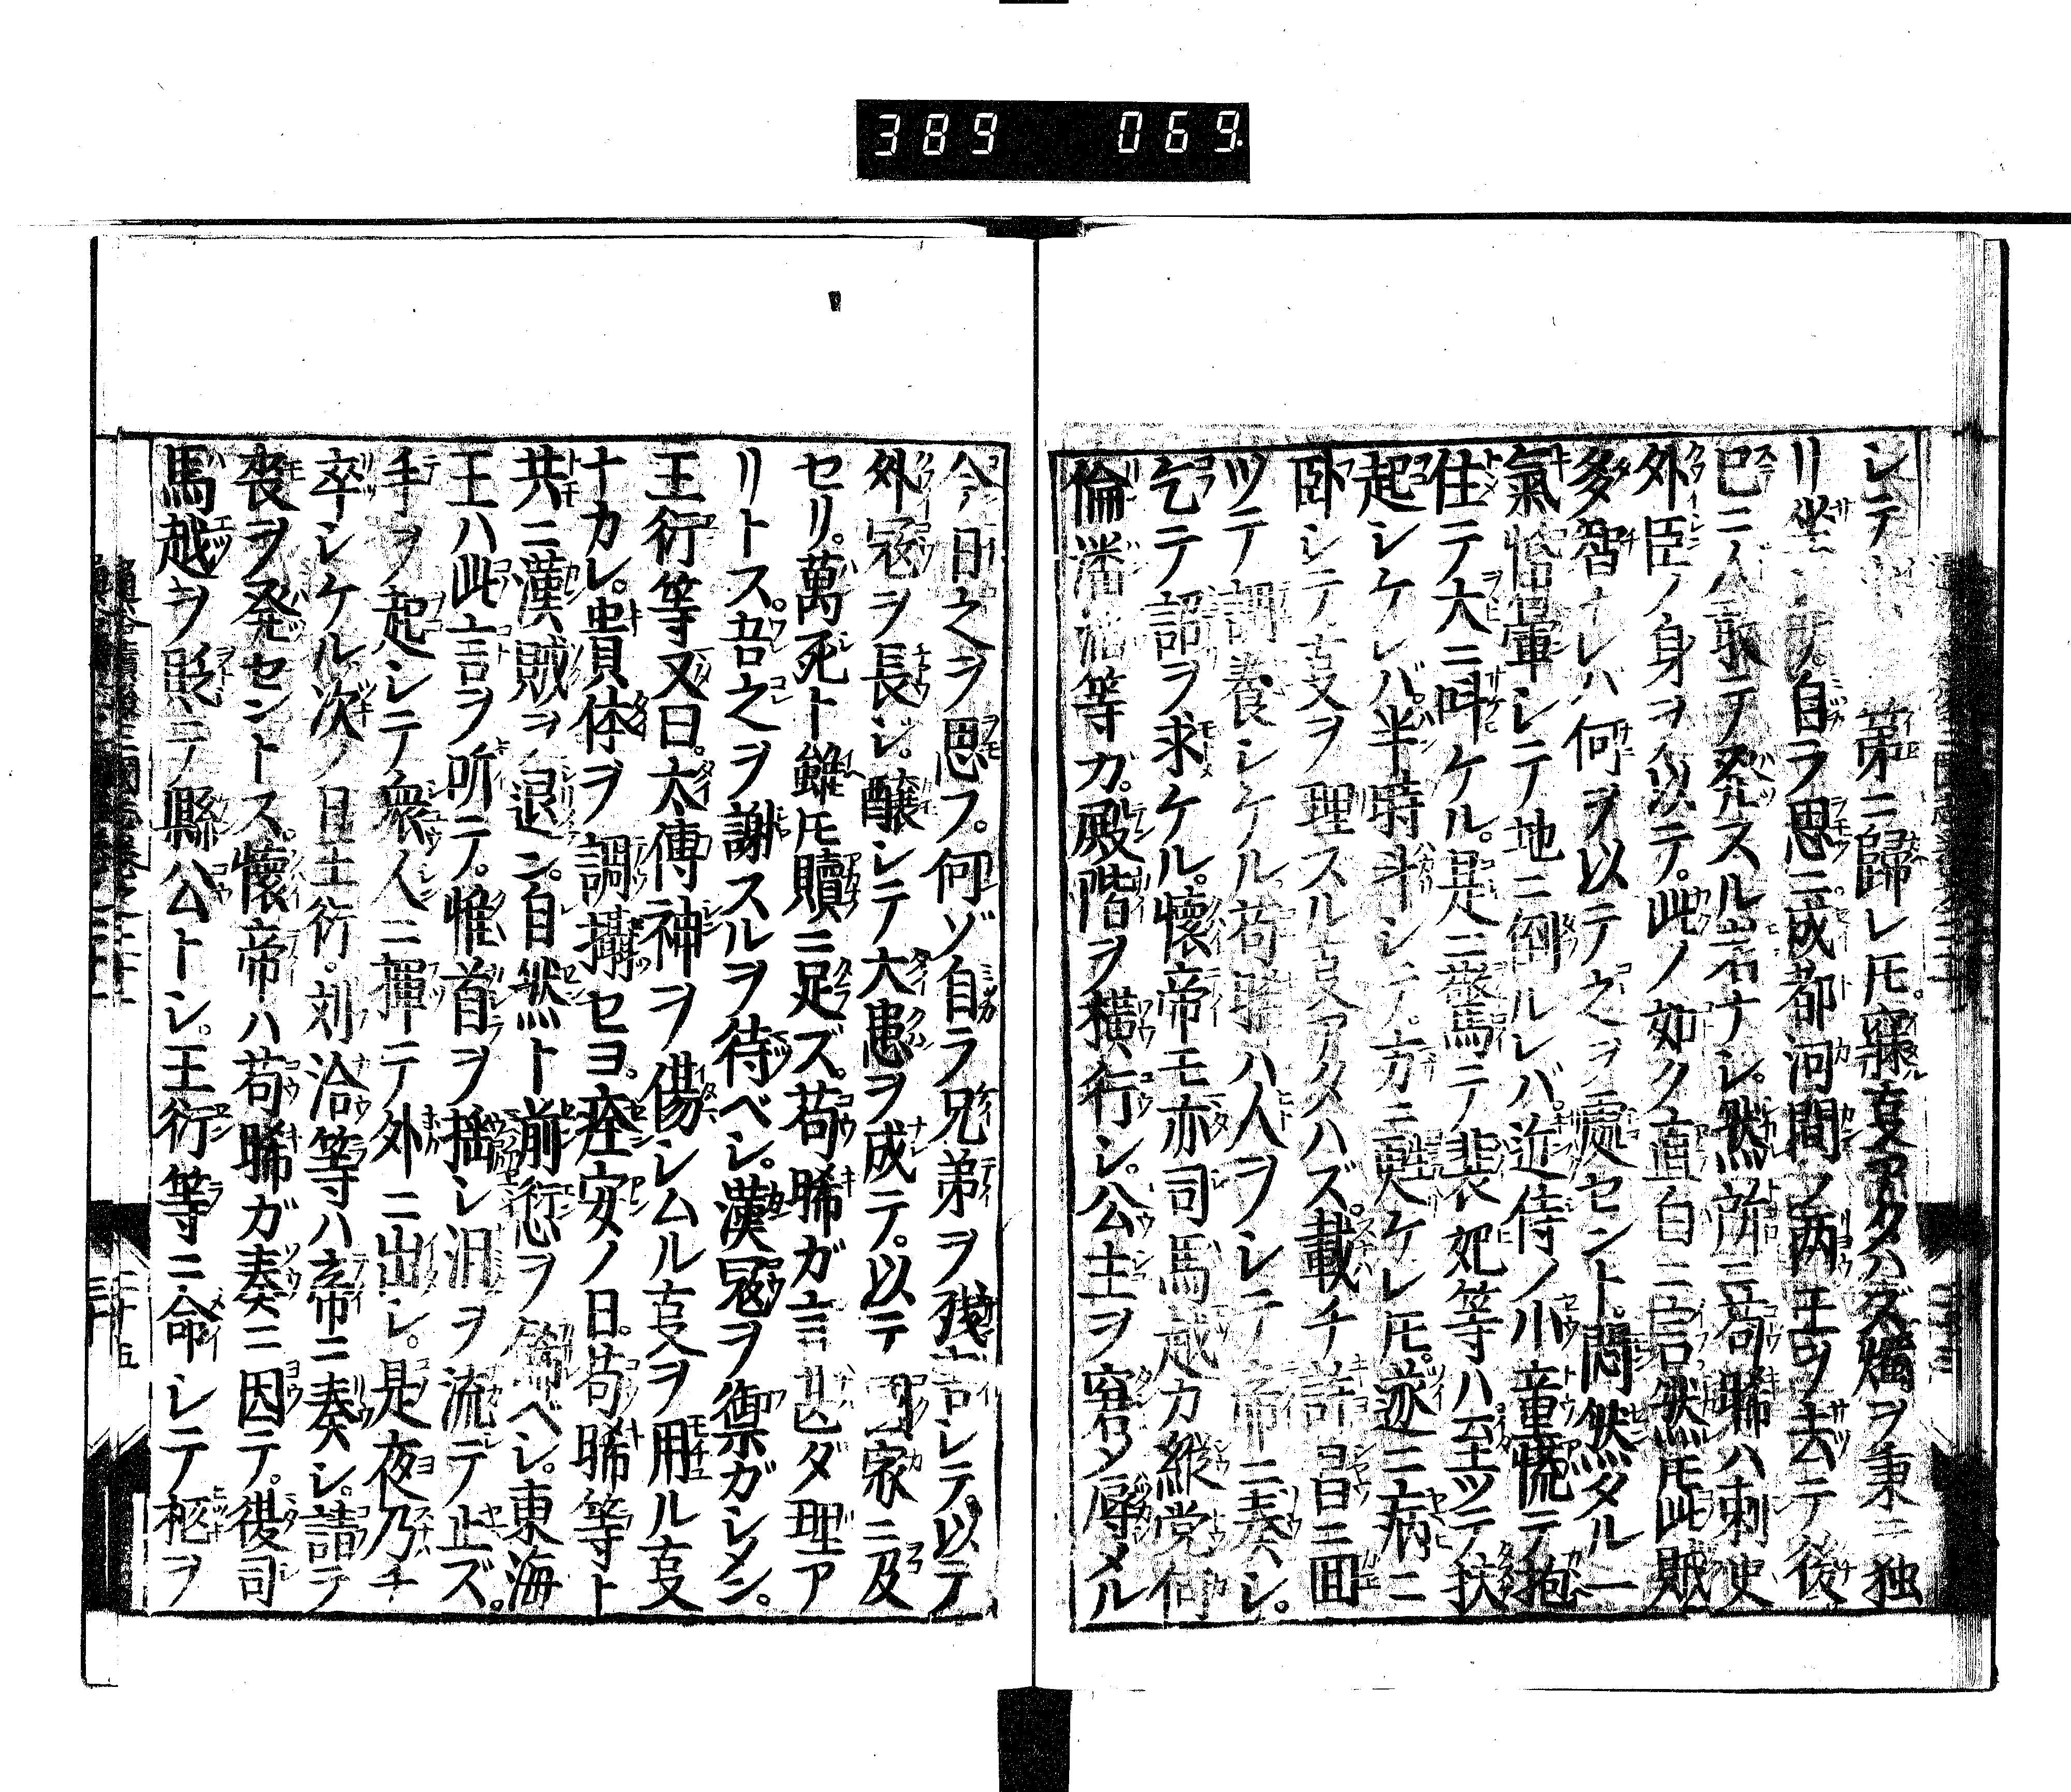 389 069
シテ 第ニ歸レ𪜈。寐ヿアタハズ燭ヲ秉ニ独
リ坐 自ラ思ニ成都河間ノ两王ノ去テ後
已ニ人敢テ発スル者ナシ。然所ニ苟晞ハ刺史
外臣ノ身ヲ以テ。此ノ如ク直白ニ言然𪜈此賊
多智ナレハ何ヲ以テ之ヲ處セント。悶然タルー
氣 シテ地ニ倒ルレバ。近侍ノ小童慌テ抱
住テ大ニ呌ケル。是ニ驚テ裴妃等ハ至ツテ扶
起シケレバ。半時斗シテ。方ニ甦ケレ𪜈。遂ニ病ニ
臥シテ叓ヲ理スル叓アタハズ。載チ許昌ニ囬
ツテ調養シケル。苟晞ハ人ヲシテ帝ニ奏シ。
乞テ詔ヲ求ケル。懐帝モ亦司馬越カ縦党何
倫潘滔等カ。殿階ヲ横行シ。公主ヲ窘メ辱メル
今日之ヲ思フ。何ゾ自ラ兄弟ヲ残害シテ。以テ
外冦ヲ長シ。釀シテ大患ヲ成テ。以テ國家ニ及
セリ。萬死ト雖𪜈贖ニ足ズ。苟晞ガ言甚ダ理ア
リトス。吾之ヲ謝スルヲ待ベシ。漢冦ヲ御禦ガシメン。
王衍等又曰。太傅神ヲ傷シムル叓ヲ用ル叓
ナカレ。貴体ヲ調攝セヨ。痊安ノ日。苟晞等ト
共ニ漢賊ヲ退ン。自然ト前愆ヲ 歸ベシ。東海
王ハ此言ヲ听テ。惟首ヲ揺シ泪ヲ流テ止ズ。
手ヲ起シテ衆人ニ揮テ外ニ出シ。是夜乃チ
卒シケル次ノ日王衍。刘洽等ハ帝ニ奏シ。請テ
喪ヲ発セントス。懐帝ハ苟晞ガ奏ニ因テ。復司
馬越ヲ貶テ縣公トシ。王衍等ニ命シテ柩ヲ